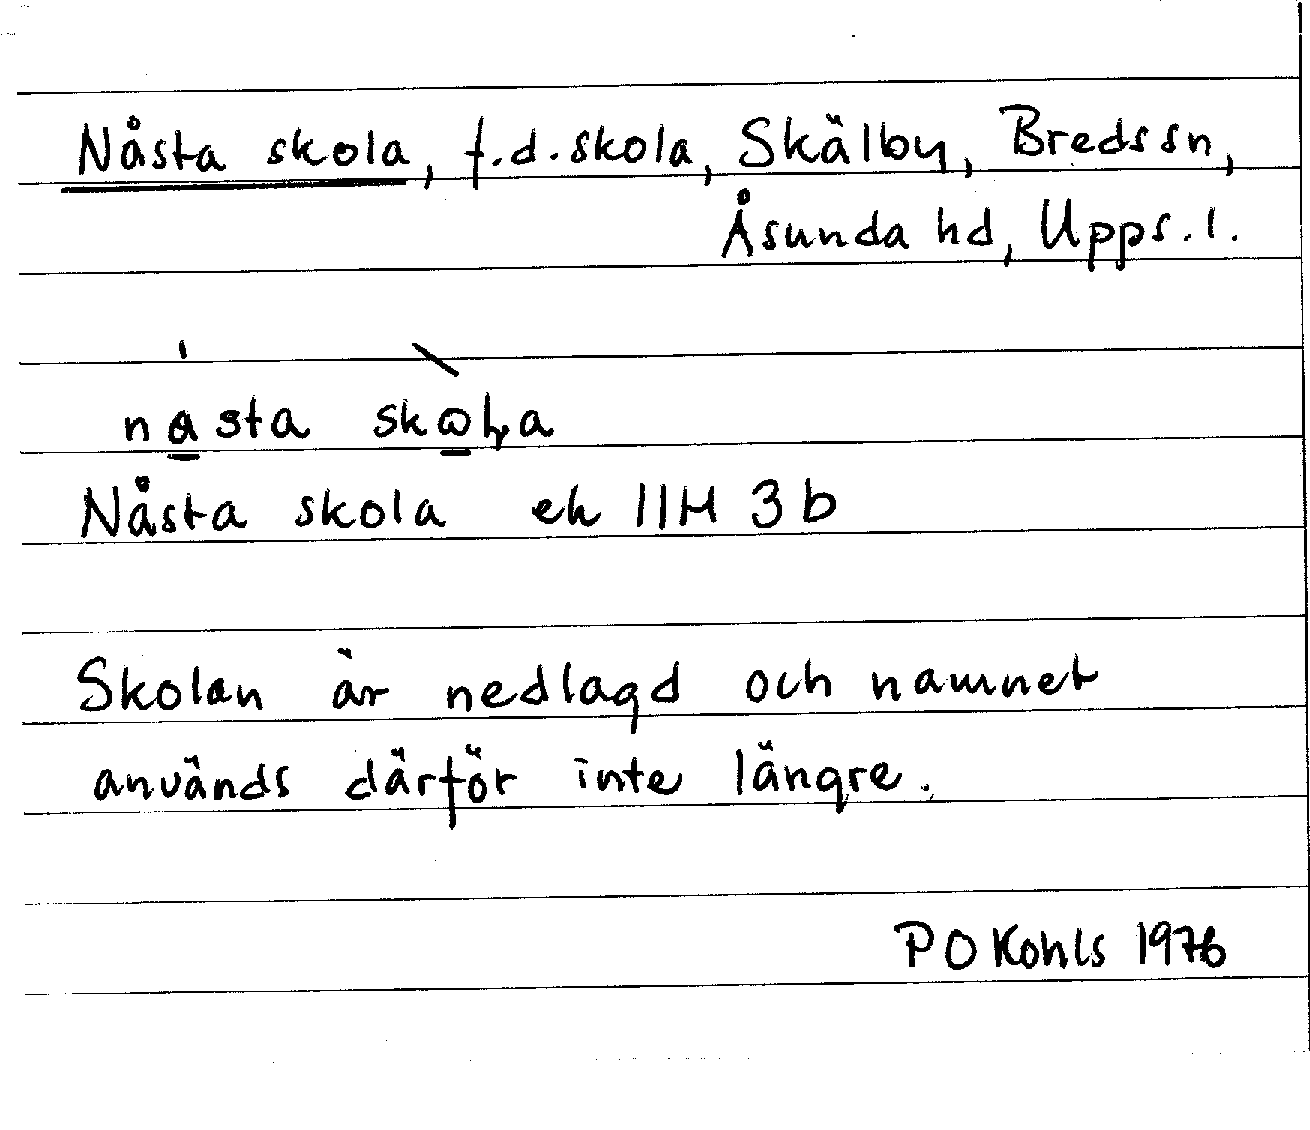 Nåsta skola, f.d. skola, Skälby, Breds sn,
Åsunda hd, Upps. l.
nåsta skωla
Nåsta skola ek 11H 3b
Skolan är nedlagd och namnet
används därför inte längre.
P O Kohls 1976